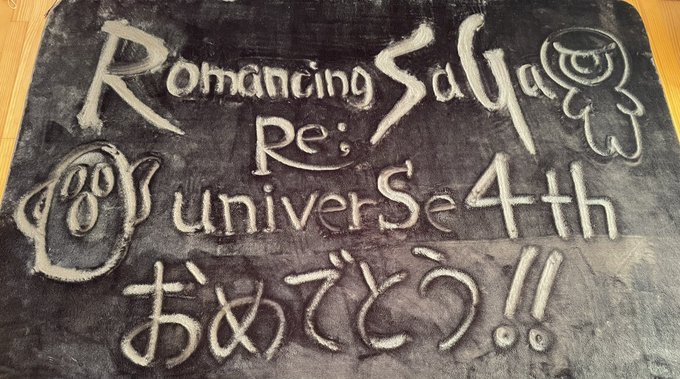 Romancing SaGa
Re;
univerSe 4th
おめでとう!!